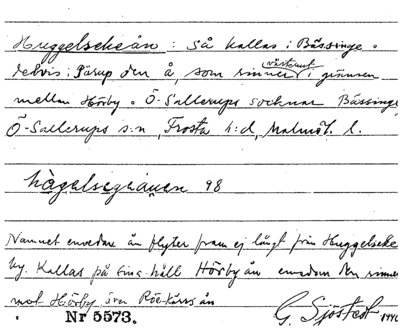 Huggelsekeån : så kallas i Bässinge o
delvis i Pärup den å, som rinner västerut i gränsen
mellan Hörby o. Ö-Sallerups socknar Bässinge
Ö-Sallerups s:n, Frosta h:d, Malmöh. l.
hägelsegeånen 98
Namnet emedan ån flyter fram ej långt från Huggelseke
by. Kallas på sina håll Hörby ån emedan den rinner
mot Hörby, även ån
Nr 5573. G. Sjöstedt 1946